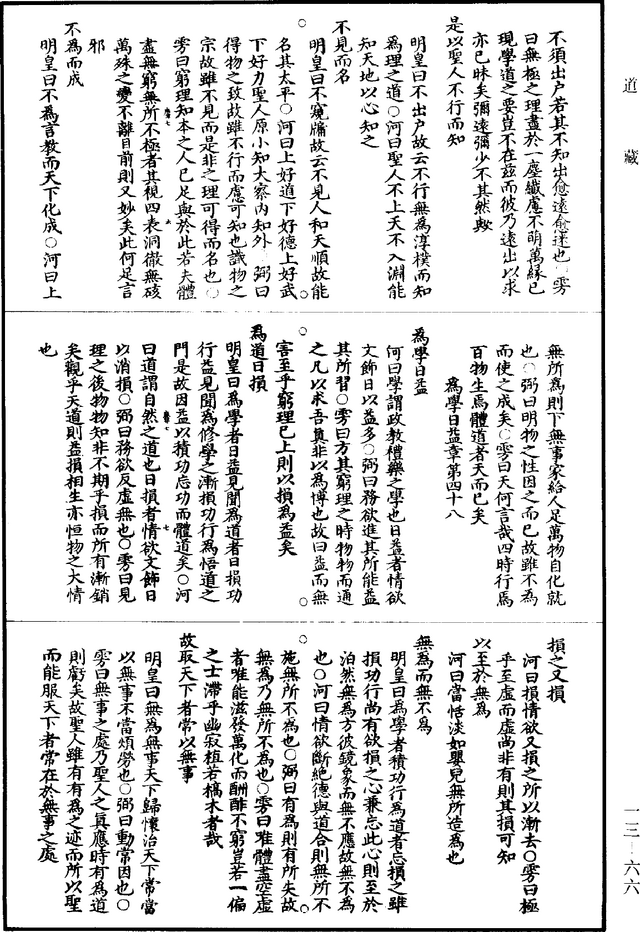 道藏
不須出户若其不知出愈遠愈迷也○雱
曰無極之理盡於一塵纖慮不萌萬緣已
現學道之要豈不在茲而彼乃遠出以求
亦已昧矣彌遠彌少不其然歟
是以聖人不行而知
明皇曰不出户故云不行無為淳樸而知
為理之道○河曰聖人不上天不入淵能
知天地以心知之
不見而名
明皇曰不窺牖故云不見人和天順故能
名其太平○河曰上好道下好德上好武
下好力聖人原小知大察内知外○弼曰
得物之致故雖不行而慮可知也識物之
宗故雖不見而是非之理可得而名也○
雱曰窮理知本之人已足與於此若夫體
盡無窮無所不極者其視四表洞徹無礙
萬殊之變不離目前則又妙矣此何足言
邪
不為而成
明皇曰不為言教而天下化成○河曰上
無所為則下無事家給人足萬物自化就
也○弼曰明物之性因之而已故雖不為
而使之成矣○雱曰天何言哉四時行焉
百物生焉體道者天而已矣
為學日益章第四十八
為學日益
河曰學謂政教禮樂之學也日益者情欲
文飾日以益多○弼曰務欲進其所能益
其所習○雱曰方其窮理之時物物而通
之凡以求吾真非以為博也故曰益而無
害至乎窮理已上則以損為益矣
為道日損
明皇曰為學者日益見聞為道者日損功
行益見聞為修學之漸損功行為悟道之
門是故因益以積功忘功而體道矣○河
曰道謂自然之道也日損者情欲文飾日
以消損○弼曰務欲反虛無也○雱曰見
理之後物物知非不期乎損而所有漸銷
矣觀乎天道則益損相生亦恒物之大情
也
損之又損
河曰損情欲又損之所以漸去○雱曰極
乎至虛而虛尚非有則其損可知
以至於無為
河曰當恬淡如嬰兒無所造為也
無為而無不為
明皇曰為學者積功行為道者忘損之雖
損功行尚有欲損之心兼忘此心則至於
泊然無為方彼鏡象而無不應故無不為
也○河曰情欲斷絕德與道合則無所不
施無所不為也○弼曰有為則有所失故
無為乃無所不為也○雱曰唯體盡空虛
者唯能滋發萬化而酬酢不窮豈若一偏
之士滯乎幽寂植若槁木者哉
故取天下者常以無事
明皇曰無為無事天下歸懷治天下常當
以無事不當煩勞也○弼曰動常因也○
雱曰無事之處乃聖人之真應時有為道
則虧矣故聖人雖有有為之迹而所以聖
而能服天下者常在於無事之處
一三－六六